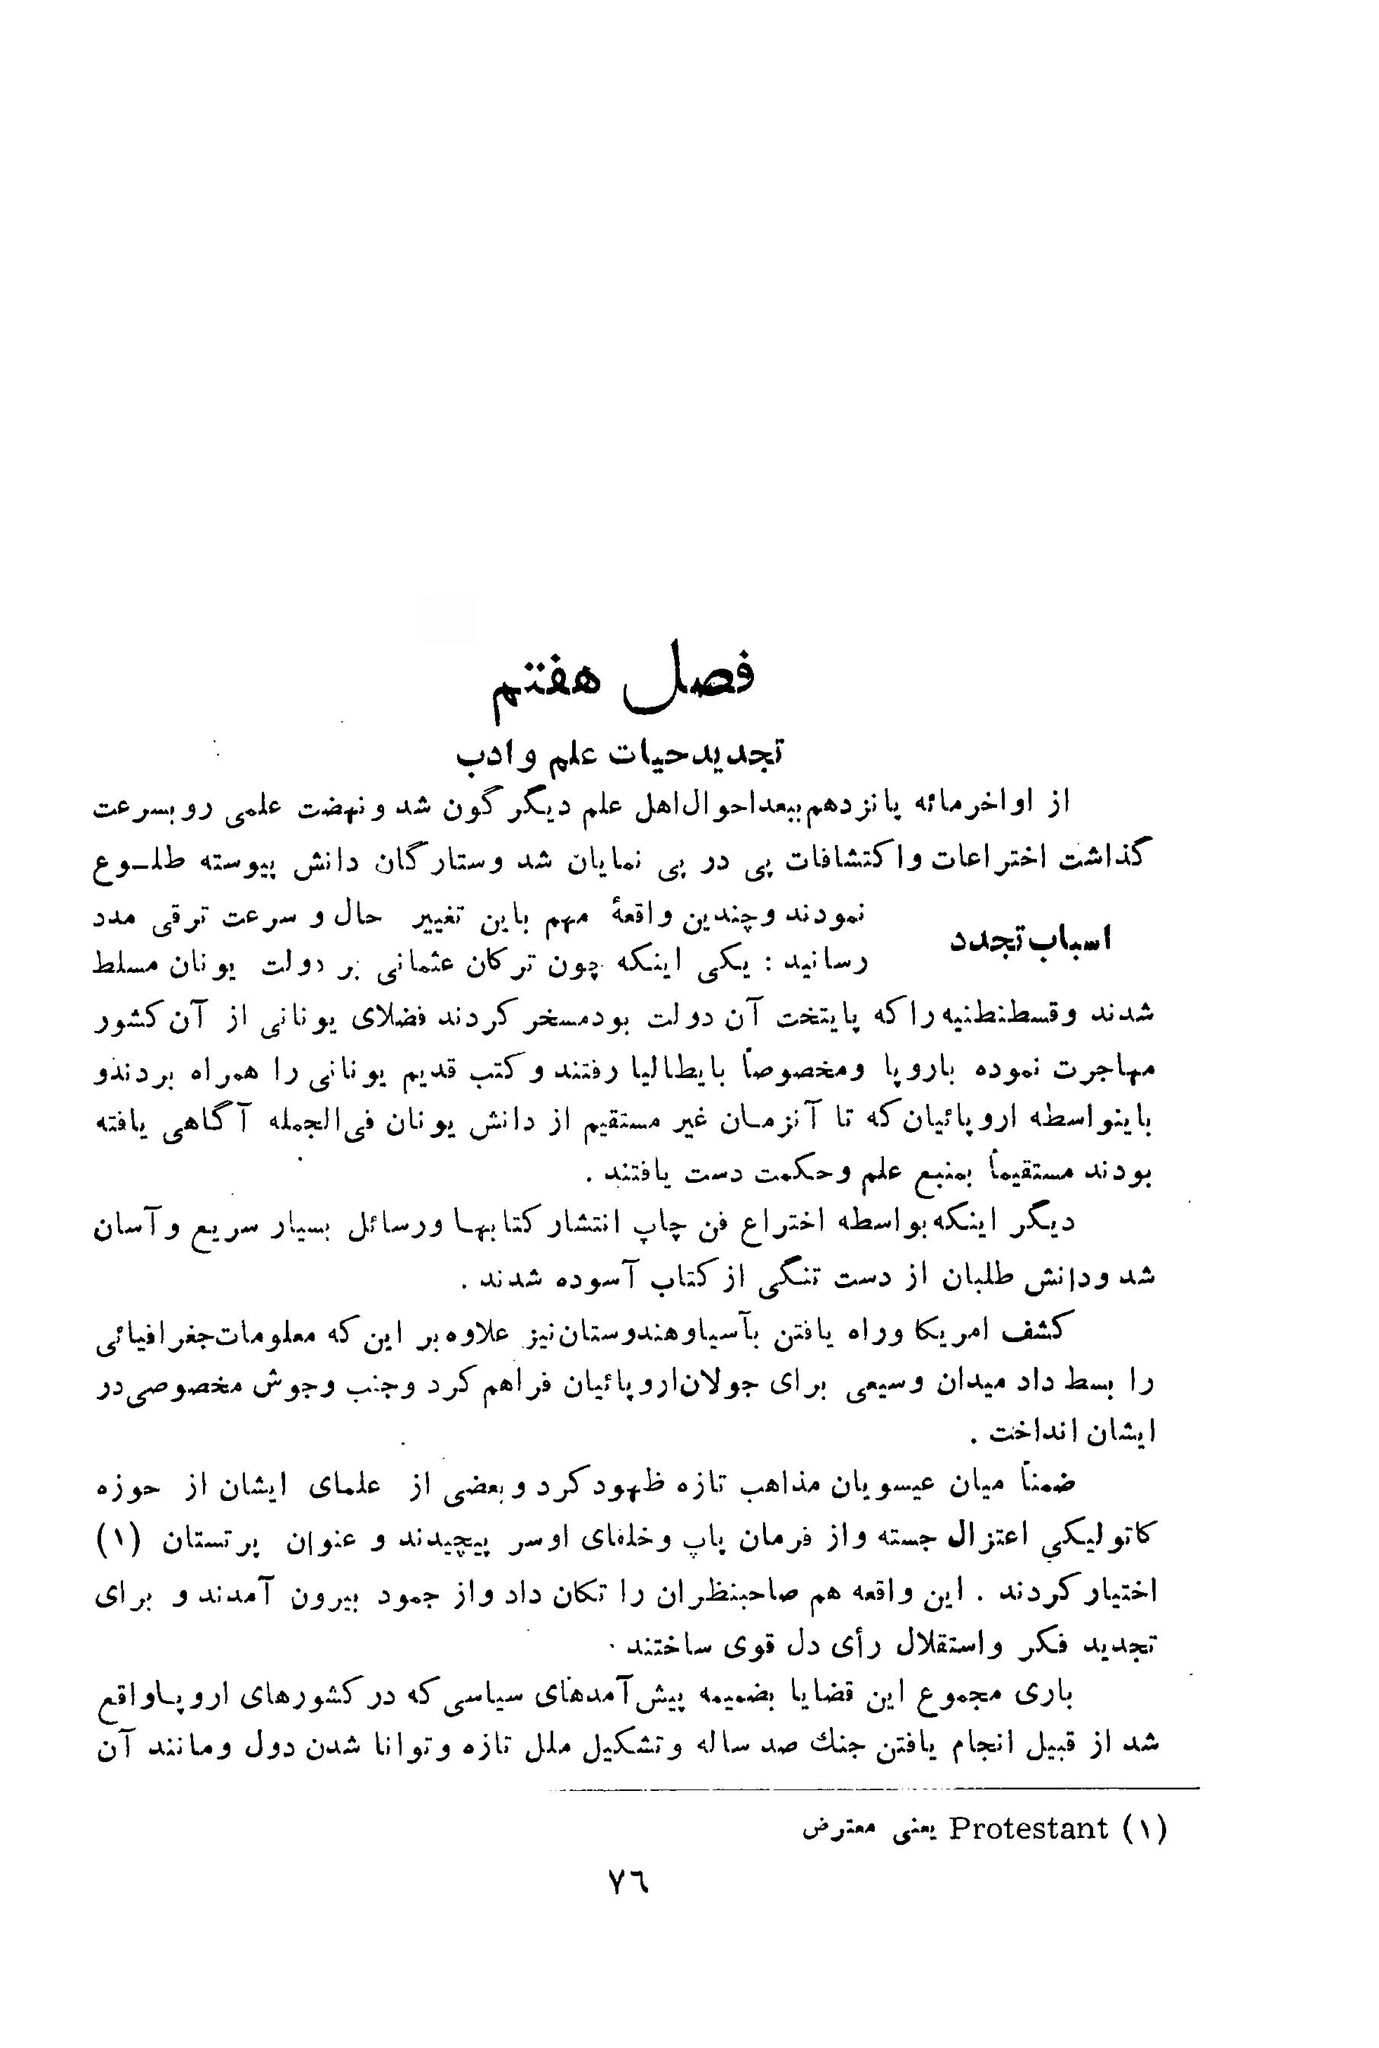 فصل هفتم
تجدید حیات علم و ادب
از اواخر مائه پانزدهم ببعد احوال اهل علم دیگر گون شد و نهضت علمی رو بسرعت
گذاشت اختراعات و اکتشافات پی در پی نمایان شد و ستارگان دانش پیوسته طلـوع
اسباب تجدد
نمودند و چندین واقعۀ مهم باین تغییر حال و سرعت ترقی مدد
رسانید : یکی اینکه چون ترکان عثمانی بر دولت یونان مسلط
شدند و قسطنطنیه را که پایتخت آن دولت بود مسخر کردند فضلای یونانی از آن کشور
مهاجرت نموده باروپا و مخصوصاً بایطالیا رفتند و کتب قدیم یونانی را همراه بردند و
باینواسطه اروپائیان که تا آنزمـان غیر مستقیم از دانش یونان فی‌الجمله آگاهی یافته
بودند مستقیماً بمنبع علم و حکمت دست یافتند .
دیگر اینکه بواسطه اختراع فن چاپ انتشار کتابهـا و رسائل بسیار سریع و آسان
شد و دانش طلبان از دست تنگی از کتاب آسوده شدند .
کشف امریکا و راه یافتن بآسیا و هندوستان نیز علاوه بر این که معلومات جغرافیائی
را بسط داد میدان وسیعی برای جولان اروپائیان فراهم کرد و جنب و جوش مخصوصی در
ایشان انداخت .
ضمناً میان عیسویان مذاهب تازه ظهور کرد و بعضی از علمای ایشان از حوزه
کاتولیکی اعتزال جسته و از فرمان پاپ و خلفای او سر پیچیدند و عنوان پرتستان (۱)
اختیار کردند . این واقعه هم صاحبنظران را تکان داد و از جمود بیرون آمدند و برای
تجدید فکر و استقلال رأی دل قوی ساختند .
باری مجموع این قضایا بضمیمه پیش‌آمدهای سیاسی که در کشورهای اروپـا واقع
شد از قبیل انجام یافتن جنك صد ساله و تشکیل ملل تازه و توانا شدن دول و مانند آن
(۱) Protestant یعنی معترض
۷٦